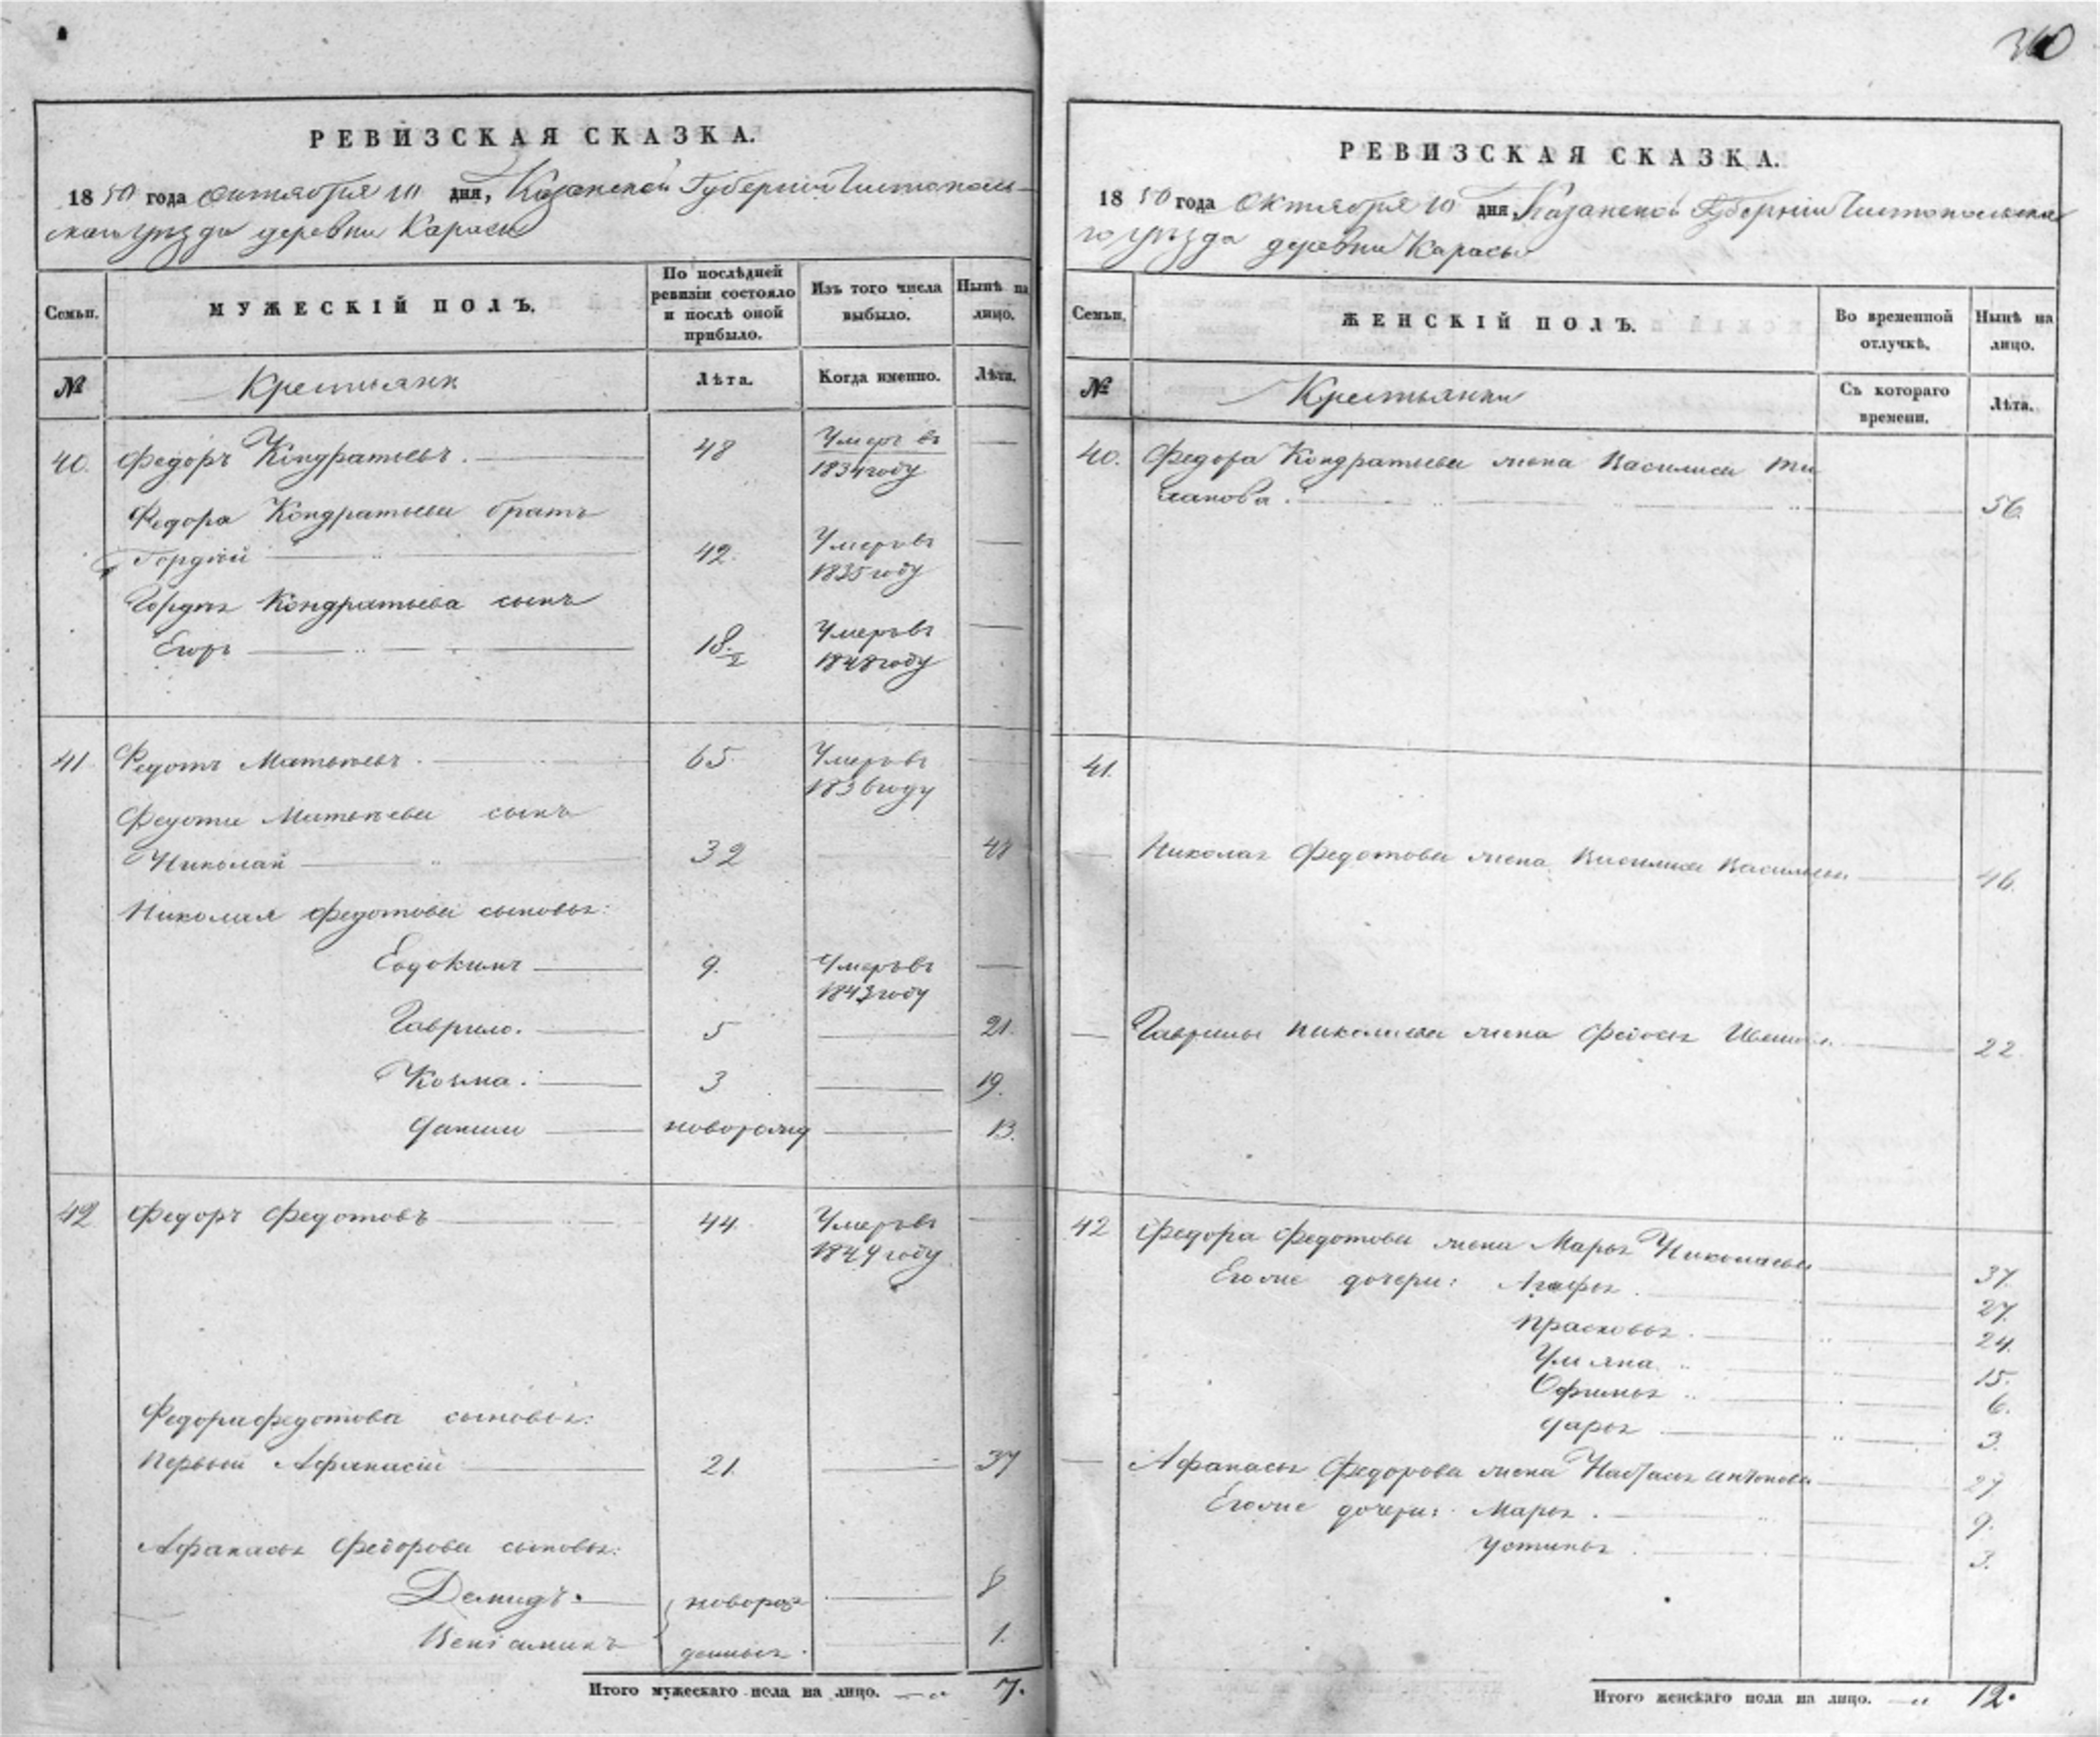 360
РЕВИЗСКАЯ СКАЗКА.
1850 года Октября 10 дня, Казанской Губернiи Чистополь-
скаго уѣзда деревни Карасы
Семьи. МУЖЕСКІЙ ПОЛЪ. По послѣдней ревизіи состояло и послѣ оной прибыло. Изъ того числа выбыло. Нынѣ на лицо.
№ Крестьяне Лѣта. Когда именно. Лѣта.
40. Федоръ Кондратьевъ. 48 Умеръ въ
1834 году
Федора Кондратьева братъ
Гордѣй 42. Умеръ въ
1835 году
Гордѣя Кондратьева сынъ
Егоръ 18 Умеръ въ
1848 году
41 Федотъ Матвѣевъ. 65 Умеръ въ
1836 году
Федота Матвѣева сынъ
Николай 32 48
Николая Федотова сыновья:
Евдокимъ 9. Умеръ въ
1843 году
Гаврило. 5 21.
Козма. 3 19.
Данило новорожд 13.
42 Федоръ Федотовъ 44. Умеръ въ
1844 году
Федора Федотова сыновья:
Первый Афанасiй 21. 37
Афанасья Федорова сыновья:
Демидъ. новорож 8
Венiаминъ денные 1.
Итого мужескаго пола на лицо. 7.
РЕВИЗСКАЯ СКАЗКА.
1850 года Октября 10 дня Казанской Губернiи Чистопольска
го уѣзда деревни Карасы
Семьи. ЖЕНСКІЙ ПОЛЪ. Во временной отлучкѣ. Нынѣ на лицо.
№ Крестьянки Съ котораго времени. Лѣта.
40. Федора Кондратьева жена Василиса
56.
41.
Николая Федотова жена Василиса Васильева 46.
Гаврилы Николаева жена Федосья 22
42 Федора Федотова жена Марья Николаева 37.
Его же дочери: Агафья 27.
Прасковья. 24.
Ульяна 15.
Офимья 6.
Дарья 3.
Афанасья Федорова жена Настасья Антонова 27
Его же дочери: Марья. 9.
Устинья. 3.
Итого женскаго пола на лицо. 12.